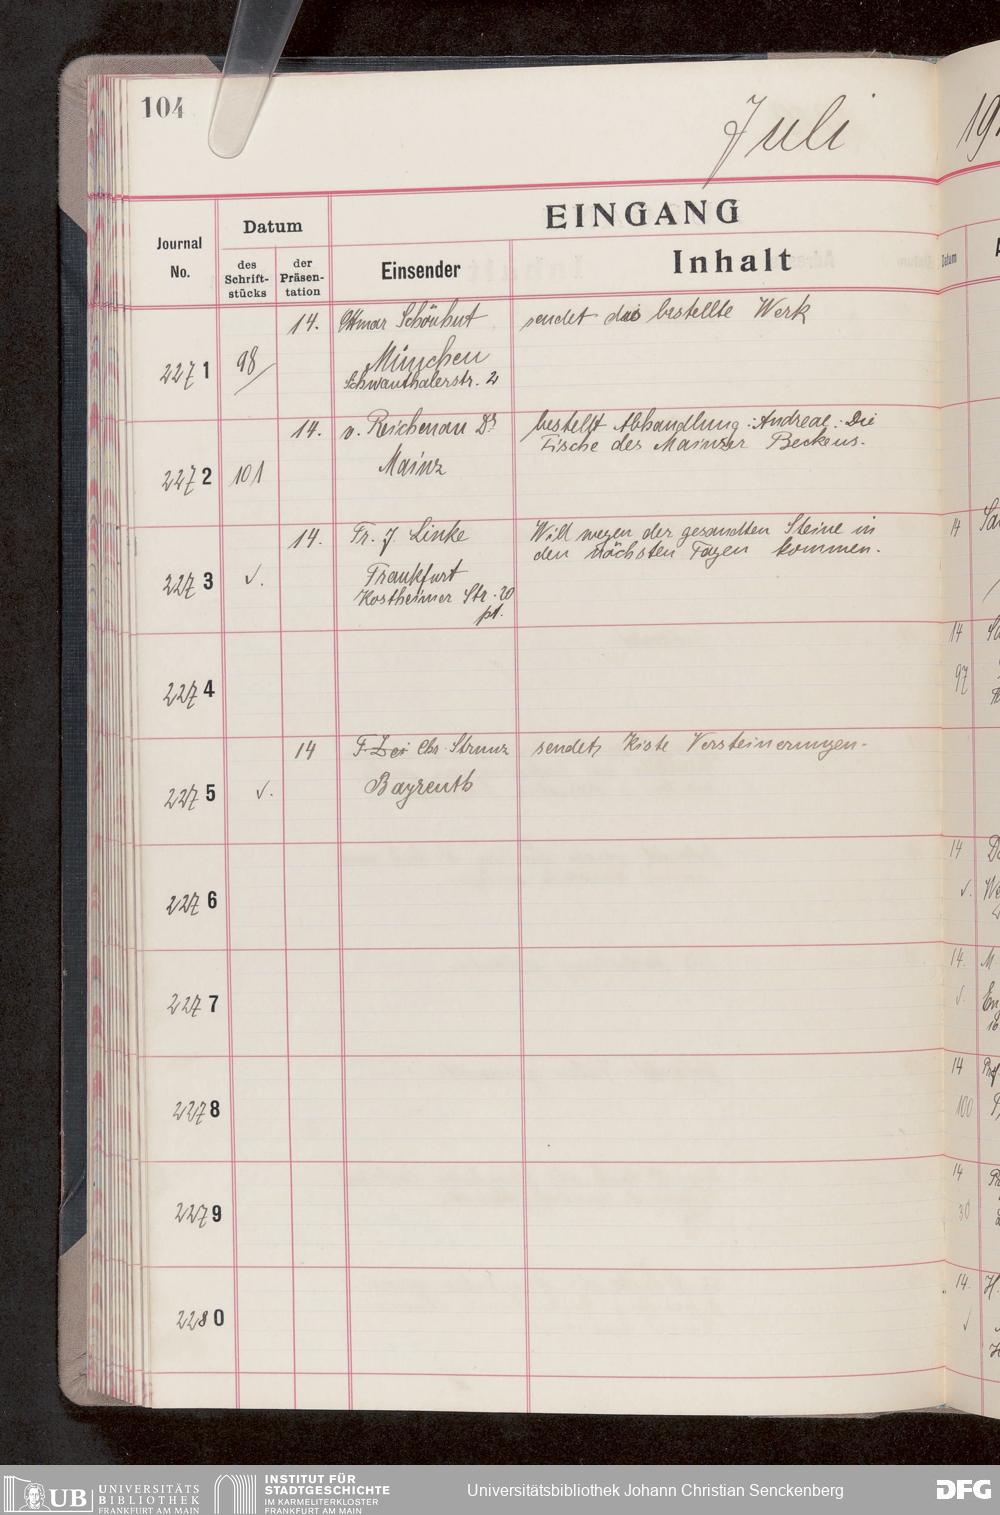 104
Juli
19
EINGANG
Journal
No.
Datum
des
Schrift-
stücks
der
Präsen-
tation
Einsender
Inhalt
Datum
2271
98/
14.
Ottmar Schönhut
München
Schwanthalerstr. 2
sendet das bestellte Werk
2272
101
14.
v. Reichenau Dr
Mainz
bestellt Abhandlung: Andreae: Die
Fische des Mainzer Beckens.
2273
√.
14.
Fr. J. Linke
Frankfurt
Kostheimer Str. 20
pt.
Will wegen der gesandten Steine in
den nächsten Tagen kommen.
14
2274
14
97
2275
√.
14
Chr. Strunz
Bayreuth
sendet Kiste Versteinerungen.
2276
14
√.
2277
14.
√.
2278
14
100
2279
14
30
2280
14.
√
UB UNIVERSITÄTS
BIBLIOTHEK
FRANKFURT AM MAIN
INSTITUT FÜR
STADTGESCHICHTE
IM KARMELITERKLOSTER
FRANKFURT AM MAIN
Universitätsbibliothek Johann Christian Senckenberg
DFG